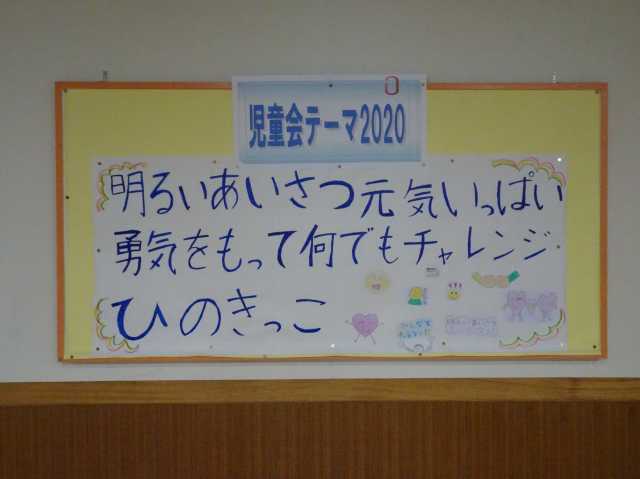 児童会テーマ2020
明るいあいさつ元気いっぱい
勇気をもって何でもチャレンジ
ひのきっこ